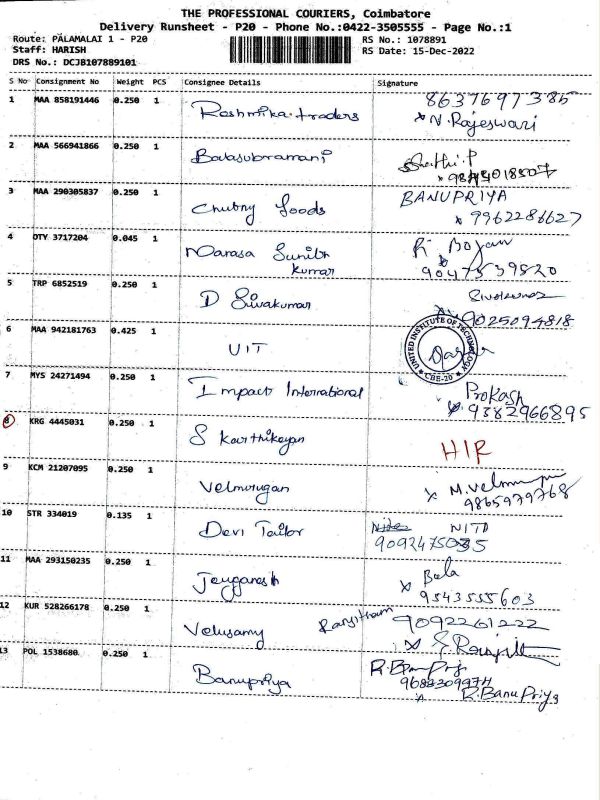 THE PROFESSIONAL COURIERS, Coimbatore
Delivery Runsheet - P20 - Phone No.:0422-3505555 - Page No.:1
Route: PALAMALAI 1 - P20 RS No.: 1078891
Staff: HARISH RS Date: 15-Dec-2022
DRS No.: DCJB107889101
S No Consignment No Weight PCS Consignee Details Signature
1 MAA 858191446 0.250 1 Reshmika traders 8637697385
N. Rajeswari
2 MAA 566941866 0.250 1 Balasubramani
3 MAA 290305837 0.250 1 Chutny foods BANUPRIYA
9962286627
4 DTY 3717204 0.045 1 Narasa Sunitr
kumar
9047539520
5 TRP 6852519 0.250 1 D Sivakumar
9025094818
6 MAA 942181763 0.425 1 UIT UNITED INSTITUTE OF TECHNOLOGY
CBE-20
7 MYS 24271494 0.250 1 Impact International Prokash
9382966895
8 KRG 4445031 0.250 1 S Karthikeyan HIR
9 KCM 21207095 0.250 1 Velmurugan
9865979768
10 STR 334019 0.135 1 Devi Tailor
11 MAA 293150235 0.250 1 Jeyganesh Bala
9543555603
12 KUR 528266178 0.250 1 Velusamy Ranjitham 9092261222
13 POL 1538680 0.250 1 Banupriya
R.BanuPriya